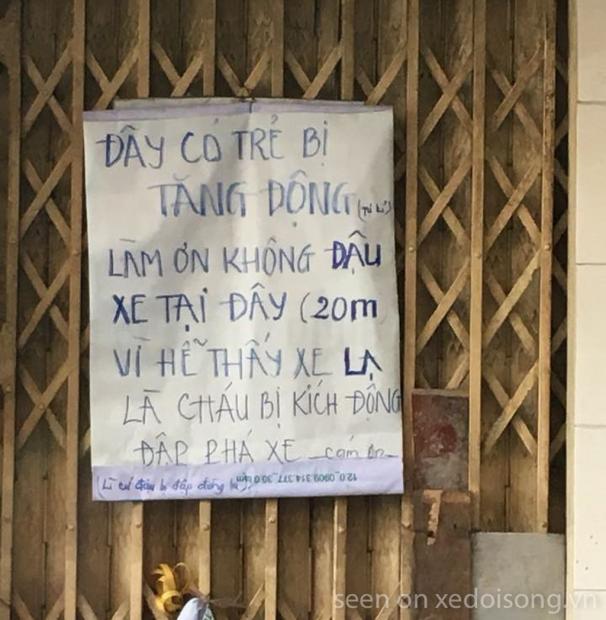 ĐÂY CÓ TRẺ BỊ
TĂNG ĐỘNG
LÀM ƠN KHÔNG ĐẬU
XE TẠI ĐÂY (20m
VÌ HỄ THẤY XE LẠ
LÀ CHÁU BỊ KÍCH ĐỘNG
ĐẬP PHÁ XE _cám ơn_
12.0_0909.314.377_30.0
seen on xedoisong.vn